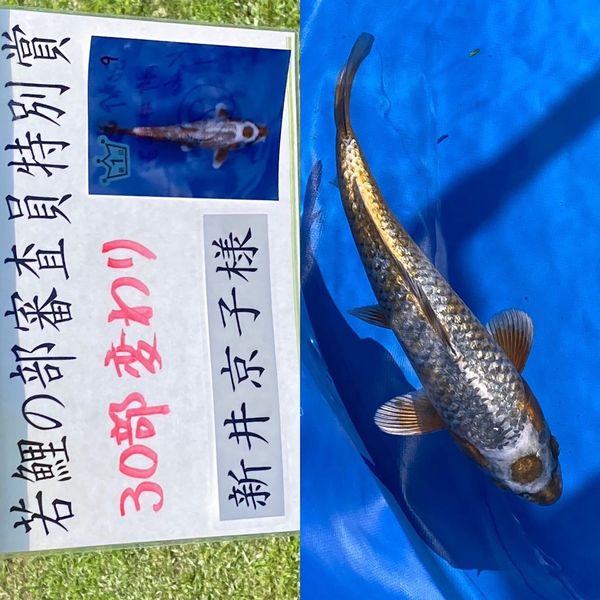 若鯉の部審査員特別賞
30部 変わり
新井京子様